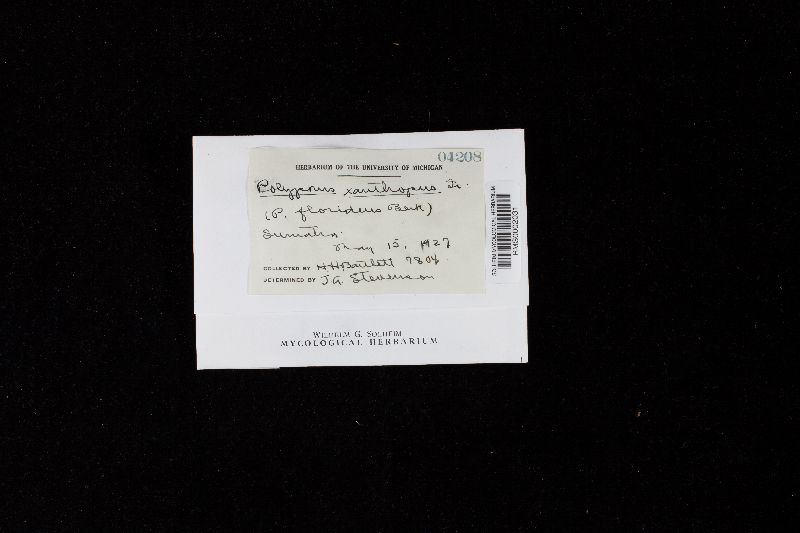 04208
HERBARIUM OF THE UNIVERSITY OF MICHIGAN
Polyporus xanthopus Fr.
(P. florideus Berk)
Sumatra.
May 15, 1927
COLLECTED BY HHBartlett 7804
DETERMINED BY J.A. Stevenson
SOLHEIM MYCOLOGICAL HERBARIUM
WILHELM G. SOLHEIM
MYCOLOGICAL HERBARIUM